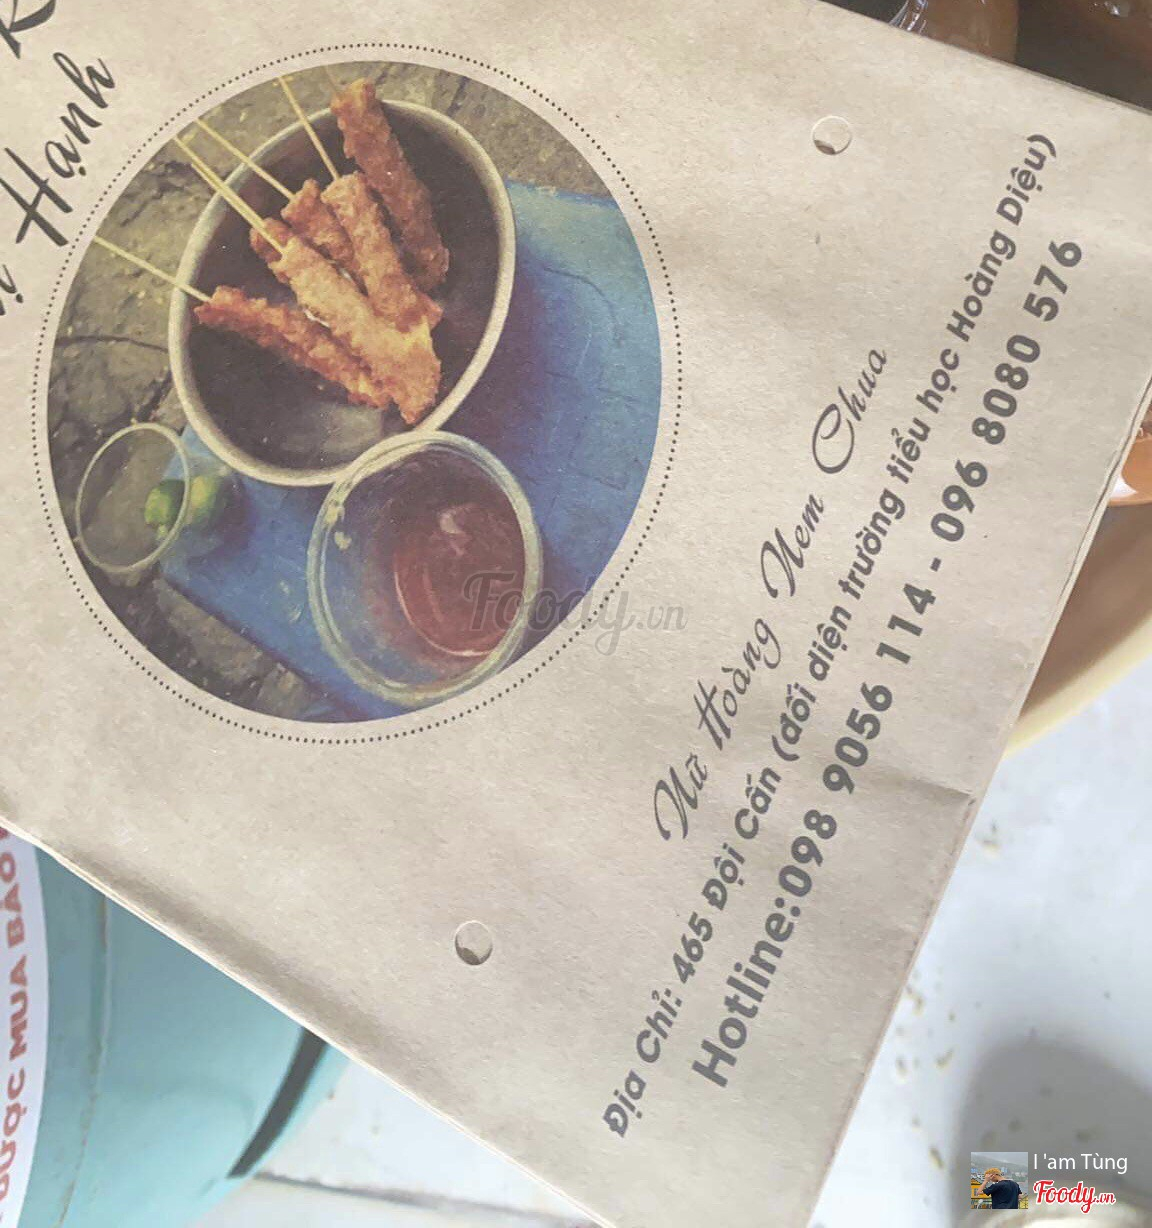 Hạnh
Nữ Hoàng Nem Chua
Địa Chỉ: 465 Đội Cấn (đối diện trường tiểu học Hoàng Diệu)
Hotline:098 9056 114 - 096 8080 576
ĐƯỢC MUA BÁO
Foody.vn
I 'am Tùng
Foody.vn